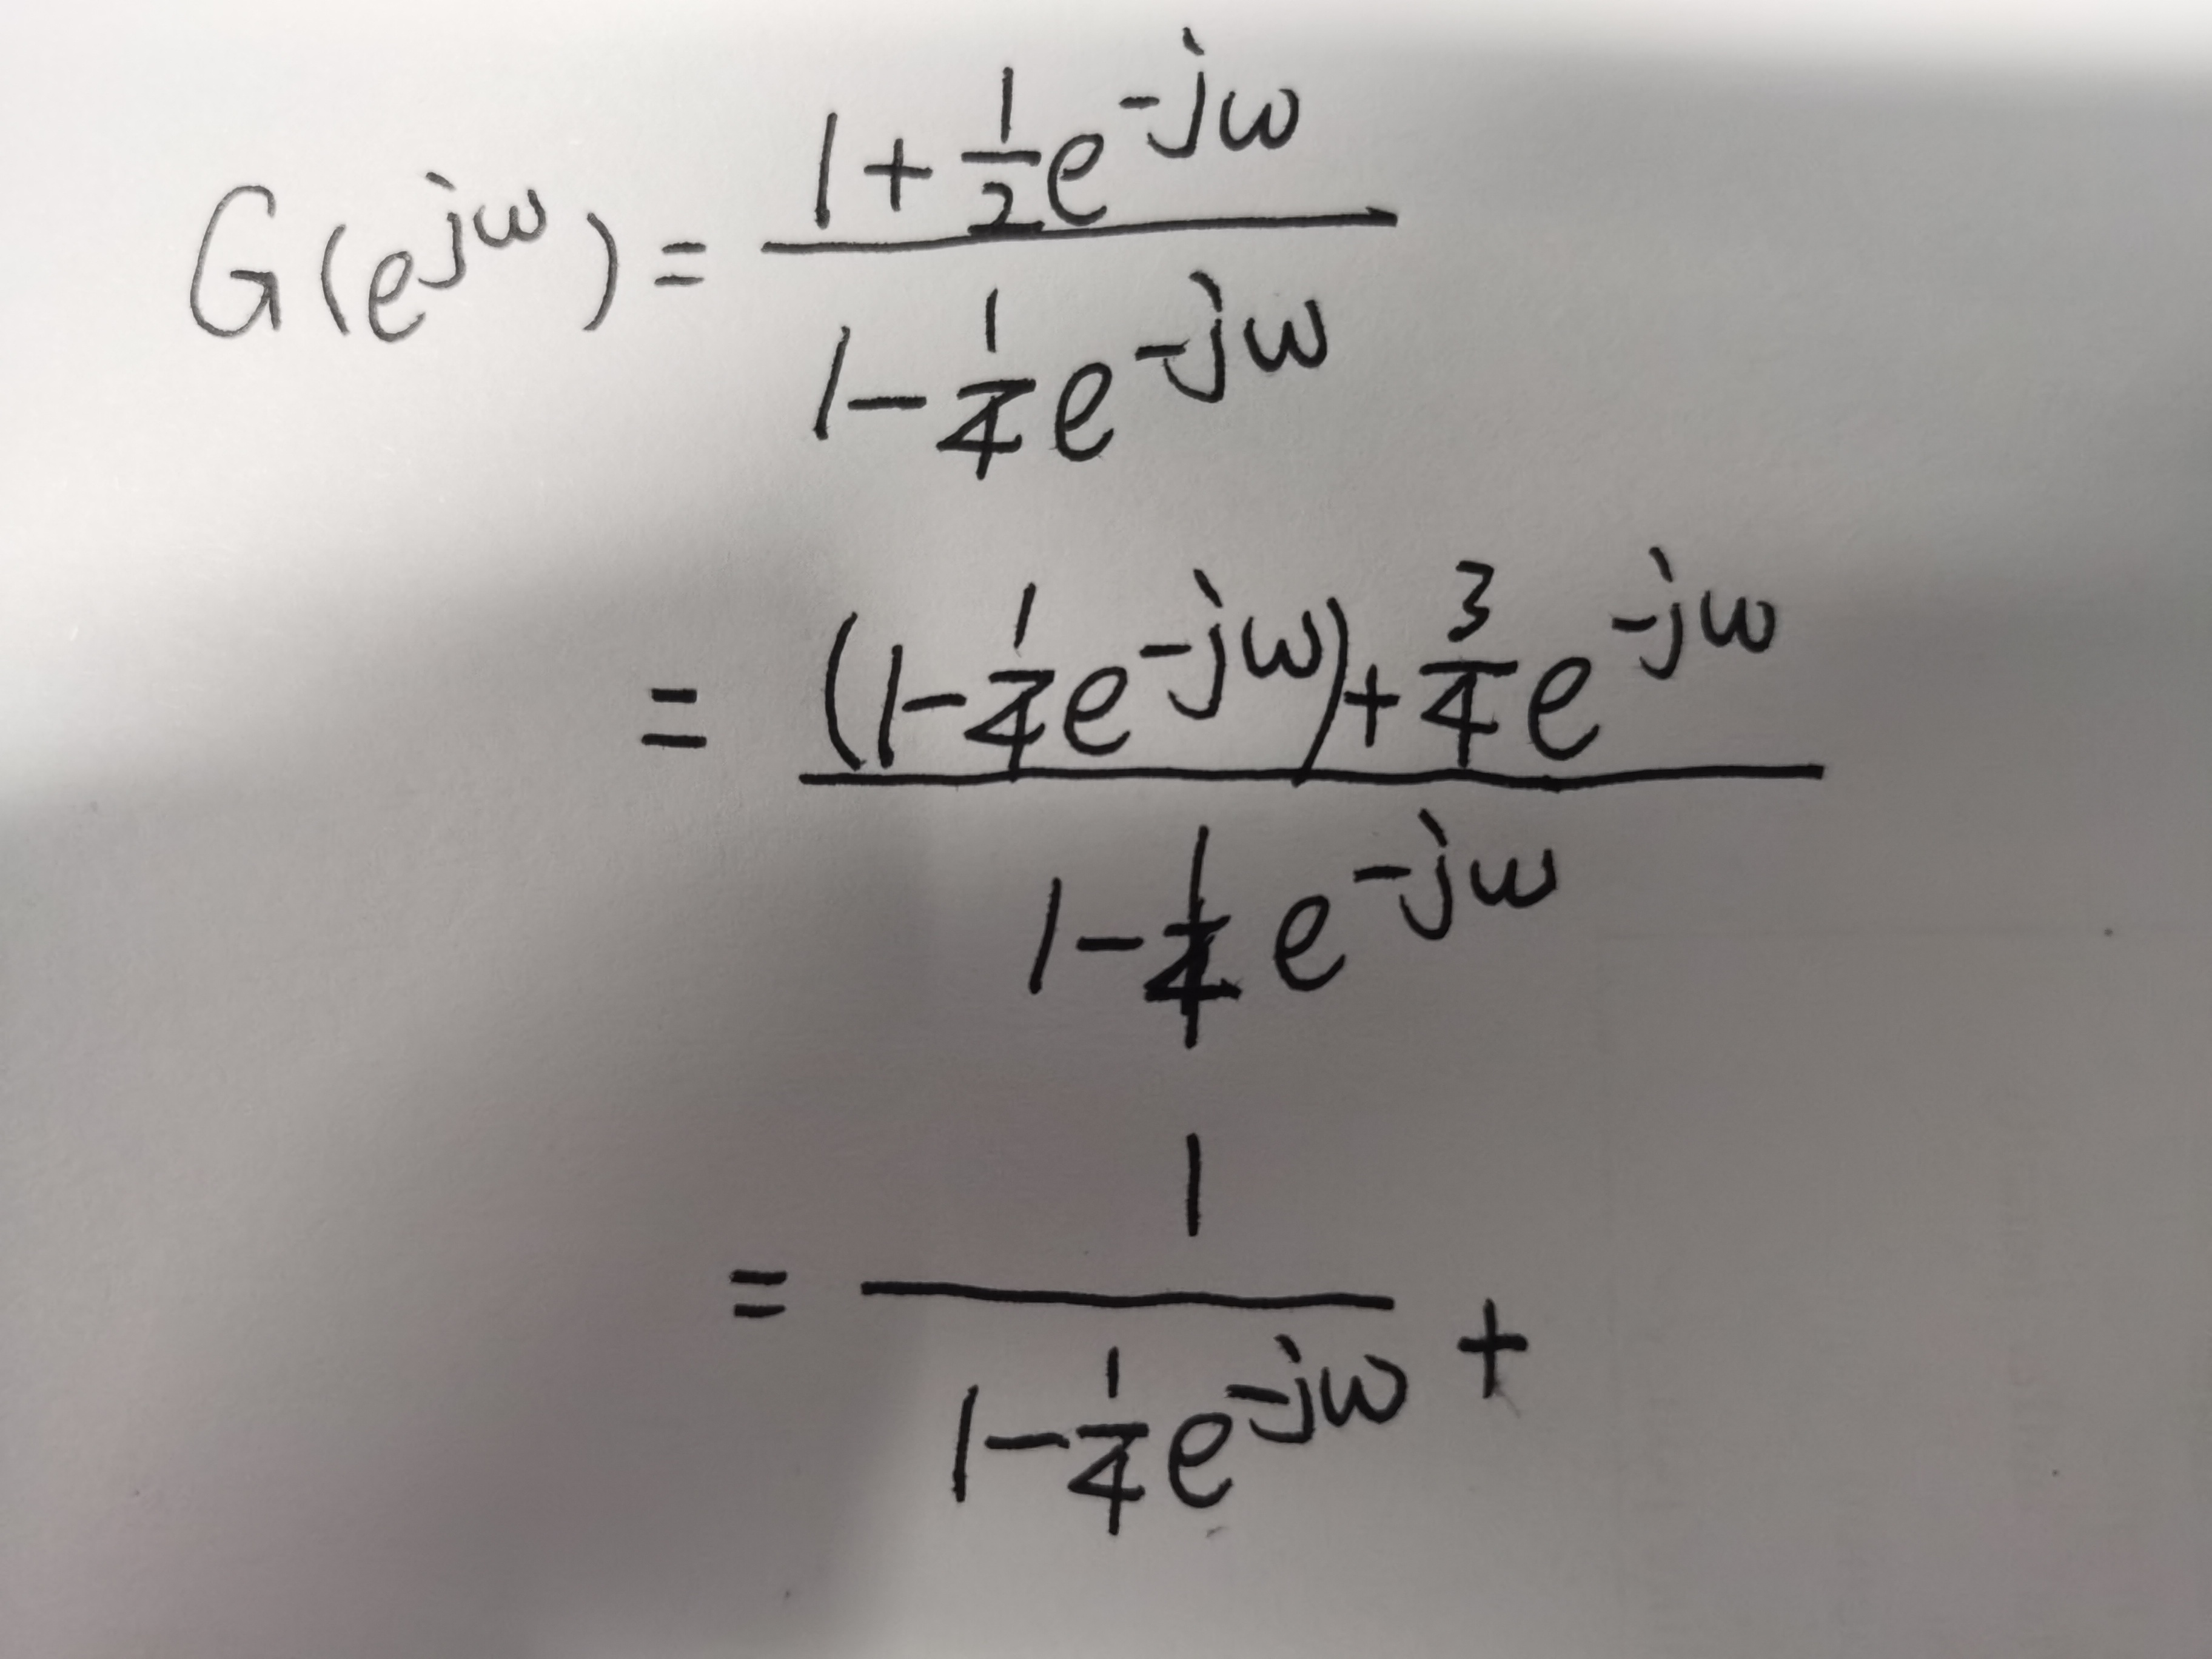 G(e^{jω}) = \frac{1+\frac{1}{2}e^{-jω}}{1-\frac{1}{4}e^{-jω}}
= \frac{(1-\frac{1}{4}e^{-jω})+\frac{3}{4}e^{-jω}}{1-\frac{1}{4}e^{-jω}}
= \frac{1}{1-\frac{1}{4}e^{-jω}} +